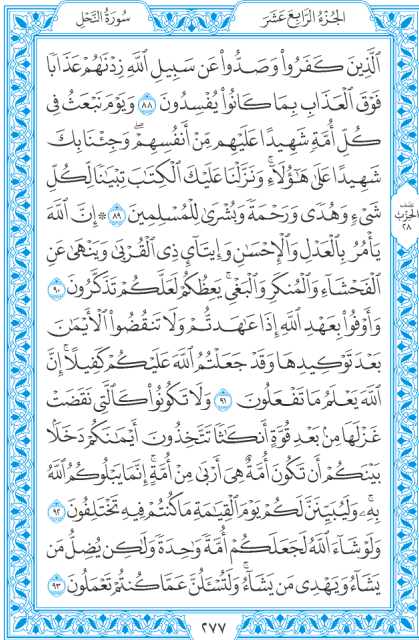 الجُزْءُ الرَّابِعَ عَشَرَ
سُورَةُ النَّحْلِ
ٱلَّذِينَ كَفَرُوا۟ وَصَدُّوا۟ عَن سَبِيلِ ٱللَّهِ زِدْنَـٰهُمْ عَذَابًا
فَوْقَ ٱلْعَذَابِ بِمَا كَانُوا۟ يُفْسِدُونَ ٨٨ وَيَوْمَ نَبْعَثُ فِى
كُلِّ أُمَّةٍ شَهِيدًا عَلَيْهِم مِّنْ أَنفُسِهِمْ ۖ وَجِئْنَا بِكَ
شَهِيدًا عَلَىٰ هَـٰٓؤُلَآءِ ۚ وَنَزَّلْنَا عَلَيْكَ ٱلْكِتَـٰبَ تِبْيَـٰنًا لِّكُلِّ
شَىْءٍ وَهُدًى وَرَحْمَةً وَبُشْرَىٰ لِلْمُسْلِمِينَ ٨٩ ۞ إِنَّ ٱللَّهَ
يَأْمُرُ بِٱلْعَدْلِ وَٱلْإِحْسَـٰنِ وَإِيتَآئِ ذِى ٱلْقُرْبَىٰ وَيَنْهَىٰ عَنِ
ٱلْفَحْشَآءِ وَٱلْمُنكَرِ وَٱلْبَغْىِ ۚ يَعِظُكُمْ لَعَلَّكُمْ تَذَكَّرُونَ ٩٠
وَأَوْفُوا۟ بِعَهْدِ ٱللَّهِ إِذَا عَـٰهَدتُّمْ وَلَا تَنقُضُوا۟ ٱلْأَيْمَـٰنَ
بَعْدَ تَوْكِيدِهَا وَقَدْ جَعَلْتُمُ ٱللَّهَ عَلَيْكُمْ كَفِيلًا ۚ إِنَّ
ٱللَّهَ يَعْلَمُ مَا تَفْعَلُونَ ٩١ وَلَا تَكُونُوا۟ كَٱلَّتِى نَقَضَتْ
غَزْلَهَا مِنۢ بَعْدِ قُوَّةٍ أَنكَـٰثًا تَتَّخِذُونَ أَيْمَـٰنَكُمْ دَخَلًۢا
بَيْنَكُمْ أَن تَكُونَ أُمَّةٌ هِىَ أَرْبَىٰ مِنْ أُمَّةٍ ۚ إِنَّمَا يَبْلُوكُمُ ٱللَّهُ
بِهِۦ ۚ وَلَيُبَيِّنَنَّ لَكُمْ يَوْمَ ٱلْقِيَـٰمَةِ مَا كُنتُمْ فِيهِ تَخْتَلِفُونَ ٩٢
وَلَوْ شَآءَ ٱللَّهُ لَجَعَلَكُمْ أُمَّةً وَٰحِدَةً وَلَـٰكِن يُضِلُّ مَن
يَشَآءُ وَيَهْدِى مَن يَشَآءُ ۚ وَلَتُسْـَٔلُنَّ عَمَّا كُنتُمْ تَعْمَلُونَ ٩٣
نِصْف
الحِزْب
٢٨
٢٧٧